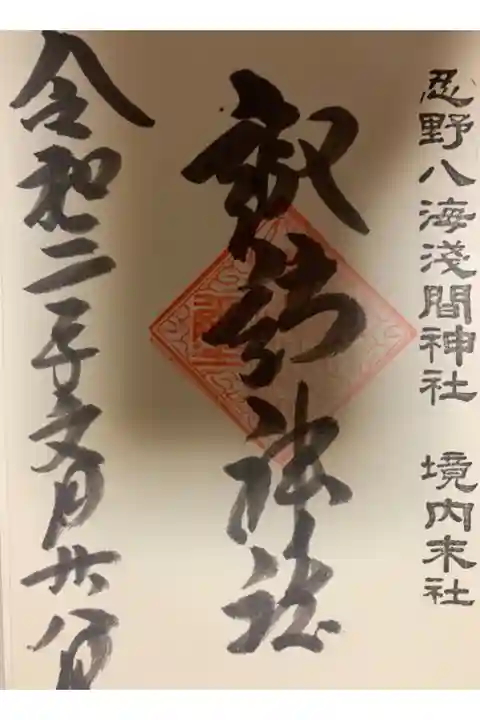 忍野八海淺間神社 境内末社
神社
令和二年文月廿八日